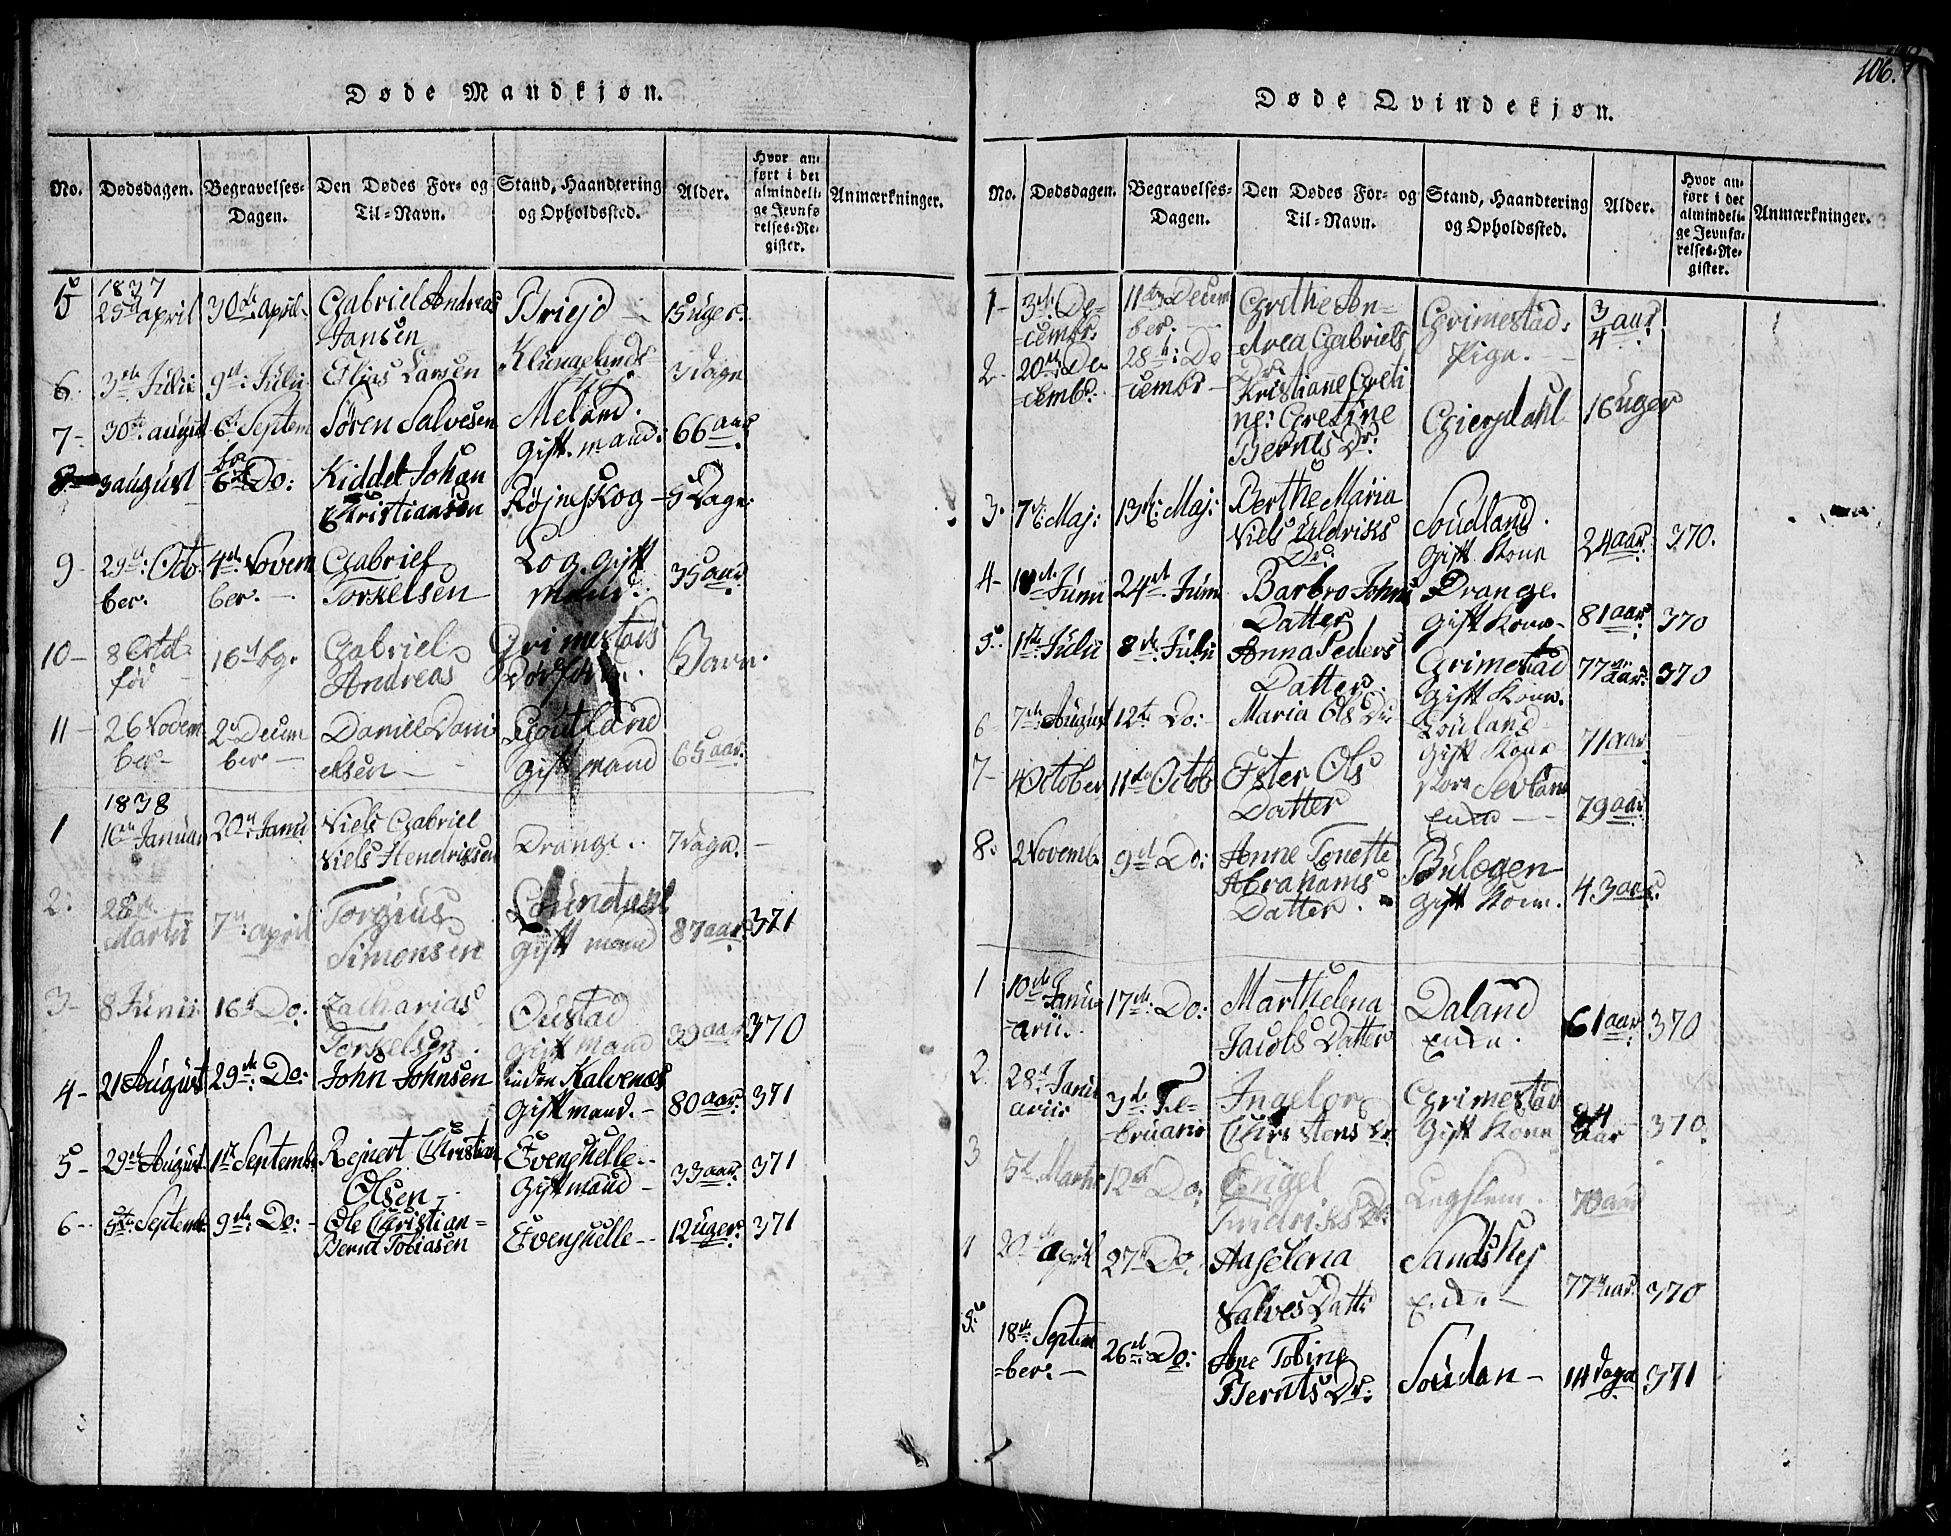 Døde Mandkjøn.
No. Dødsdagen. Begravelses-Dagen. Den Dødes For- og Til-Navn. Stand, Haandtering og Opholdssted. Alder. Hvor anført i det almindelige Jevnførelses-Register. Anmærkninger.
1837
5 25de april 30de April Gabriel Andreas
Jansen Briesd 15 Uger.
6. 3de Julii 9de: Julii Elias Larsen 3 dage
7- 30te august 6te Septem
ber Søren Salvesen Meland.
Gift. mand. 66 aar
8 3 august 6te Do: Kiddel Johan
Christiansen Røjneskog - 5 Dage
9- 29de: Octo
ber. 4de Novem
ber. - Gabriel
Torkelsen Log. gift
Mand. 35 aar
10- 8 Octob
16de Gabriel
Andreas Grimestad
11- 26 Novem
ber- 2de Decem
ber - Daniel Dani
elsen - gift mand 65 aar.
1838
1 16de Januar 20de Janu Niels Gabriel
Niels Hendriksen Drange. 7 Dage.
2: 28de
Martii 7de april Torgius
Simonsen gift mand 87 aar 371
3- 8 Junii 16de Do: Zacharias
Torkelsen. Oustad
gift mand 39 aar 370
4- 21 August 29de Do: John Johnsen indre Kalvenes
Gift mand. - 80 aar. 371
5- 29de August 1ste Septemb Rejnert Christian
Olsen - Evenshelle.
Gift mand - 33 aar. 371
6- 5te Septemb 9de: Do: Ole Christian=
Bernt Tobiasen Evenshelle- 12 Uger. 371
106.
Døde Qvindekjøn.
No. Dødsdagen. Begravelses-Dagen. Den Dødes For- og Til-Navn. Stand, Haandtering og Opholdssted. Alder. Hvor anført i det almindelige Jevnførelses-Register. Anmærkninger.
1- 3de De-
cembr. 11te Decem
ber. Grethe An-
drea Gabriels
Dr. Grimestad.
Pige. - 3/4 aar
2- 20de De
cembr. 28de: De
cembr - Kristiane Greti
ne: Gretine
Bernts Dr. Gierpdahl 16 Uger
3. 7de Maj: 13de: Maj: Berthe Maria
Niels Uldriks
Dr: Soudland.
gift Kone 24 aar. 370.
4- Junii 24de Juni Barbro Johns
Datter Drange.
Gift Kone. 81 aar 370
5. 1ste Julii 8de Julii Anna Peders
Datter. Grimestad
gift Kone. 77 aar. 370
6 7de August 12te Do: Maria Ols Dr Louland
gift Kone 71 aar
7- 4 October 11te Octob Ester Ols
Datter Enke - 79 aar
8. 2 Novemb. 9de Do: Anne Tonette
Abrahams
Datter. Bulegen
gift Kone. 43 aar.
1 10de Janu-
arii. 17de. Do: Marthelena
Jacobs Datter Daland
Enke. 61 aar 370
2. 28de Janu
ariis 3de Fe-
bruarie Ingebor
Christens Dr Grimestad
Gift Kone aar 370.
3 5te Marts 12te Do: Engel
70 aar
4 20de April 27de Do: Aaselena
Salves Datte Sandskej
Enke - 77 aar. 370
5. 18de Septem
ber. - 26de: Do: Ane Tobine
Bernts Dr: Soudan - 14 Dage 371